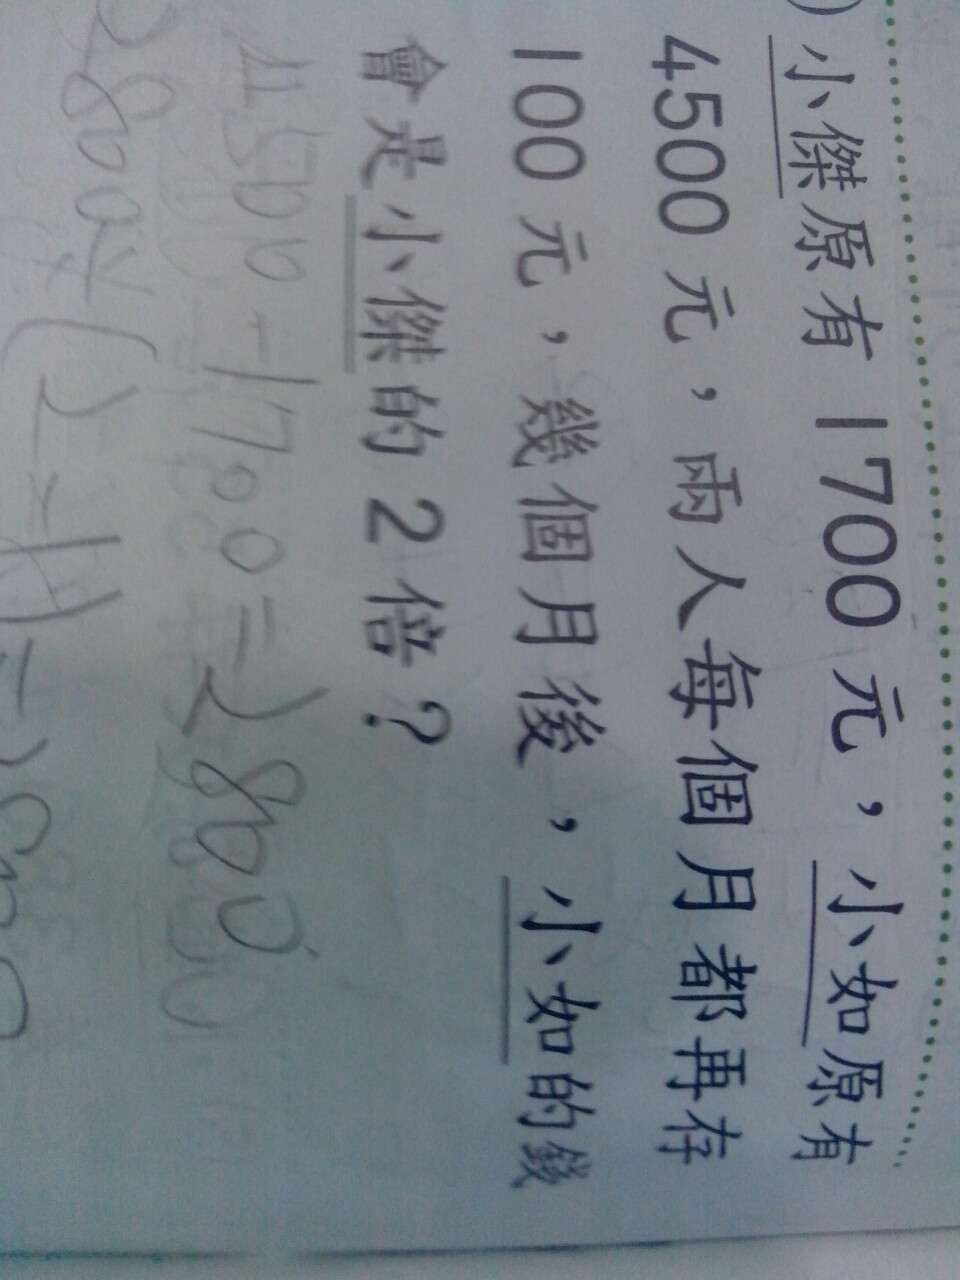 )小傑原有 1700 元，小如原有
4500 元，兩人每個月都再存
100 元，幾個月後，小如的錢
會是小傑的 2 倍？
4500-1700=2800
2800÷(2-1)=2800